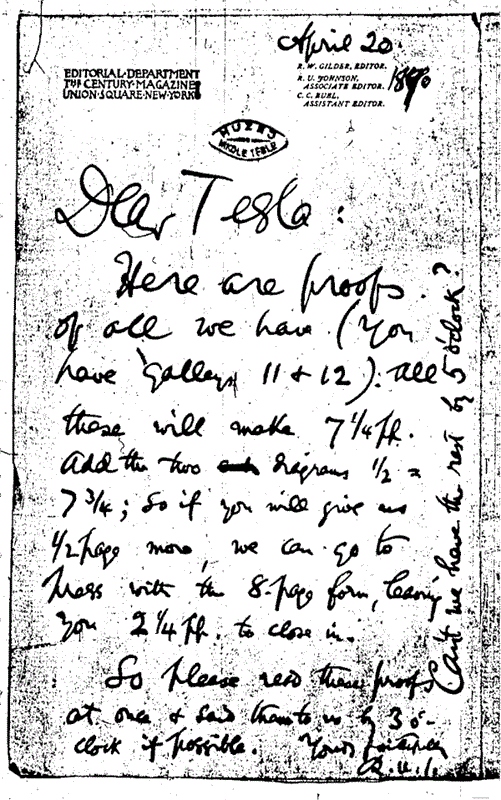 April 20
1890
EDITORIAL DEPARTMENT
THE CENTURY MAGAZINE
UNION SQUARE NEW YORK
R. W. GILDER, EDITOR.
R. U. JOHNSON,
ASSOCIATE EDITOR.
C. C. BUEL,
ASSISTANT EDITOR.
MUZEJ
NIKOLE TESLE
Dear Tesla:
Here are proofs
of all we have (you
have galleys 11 & 12): all
these will make 7 1/4 pp.
Add the two diagrams 1/2 =
7 3/4; so if you will give us
1/2 page more, we can go to
press with the 8-page form, leaving
you 2 1/4 pp. to close in.
So please read these proofs
at once & send them to us by 3 o'-
clock if possible. Yours faithfully
R. U. J.
Can't we have the rest by 5 o'clock?